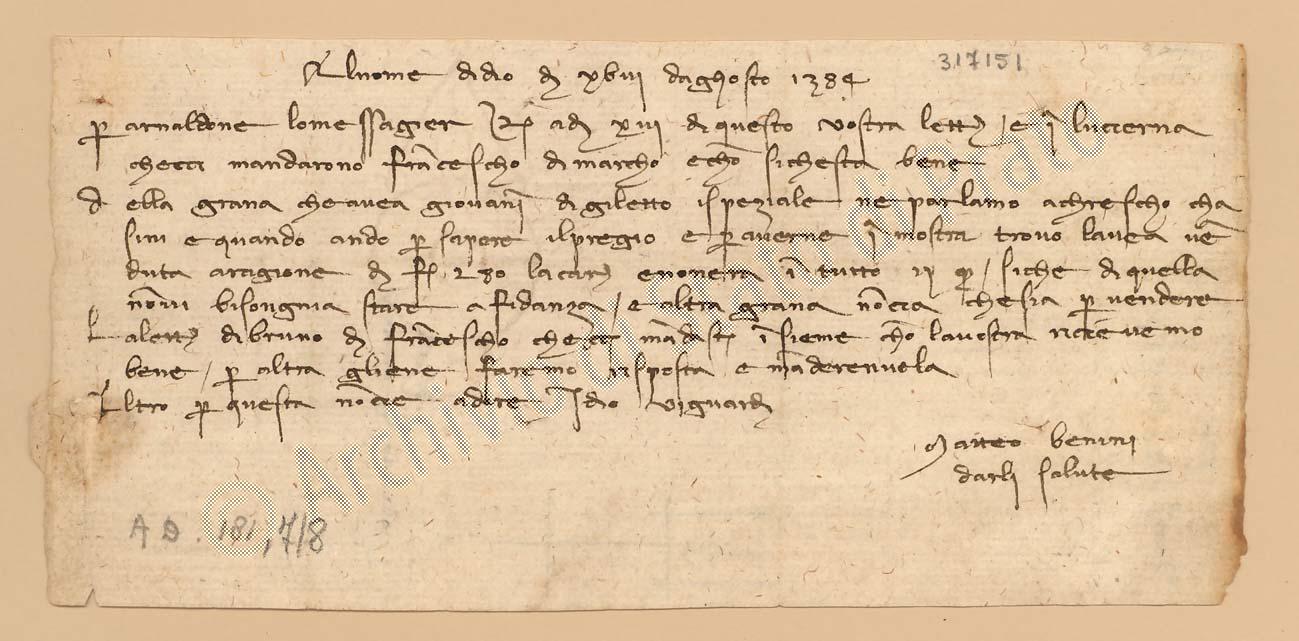 Al nome di dio di xviii daghosto 1384
317151
p arnaldone lo messagier R adi xvi di questo vostra lett e i lucierna
checci mandarono franciescho di marcho e cho sichesta bene
Della grana che avea giovani di giletto ispeziale ne parlamo a
sini e quando ando p sapere il pregio e p averne i mostra trovo lavea ven
duta a ragione di f 230 la car e nonera in tutto q siche di quella
nonvi bisongnia stare a fidanza e altra grana noncia chesia p vendere
La lett di bruno di franciescho insieme cho la vostra ricievemo
bene p altra gliene faremo risposta e manderenvela
Altro p questa noncie a dire Idio vi guardi
Matteo benini
darli salute
A D. 181, 7/8
© Archivio di Stato di Prato